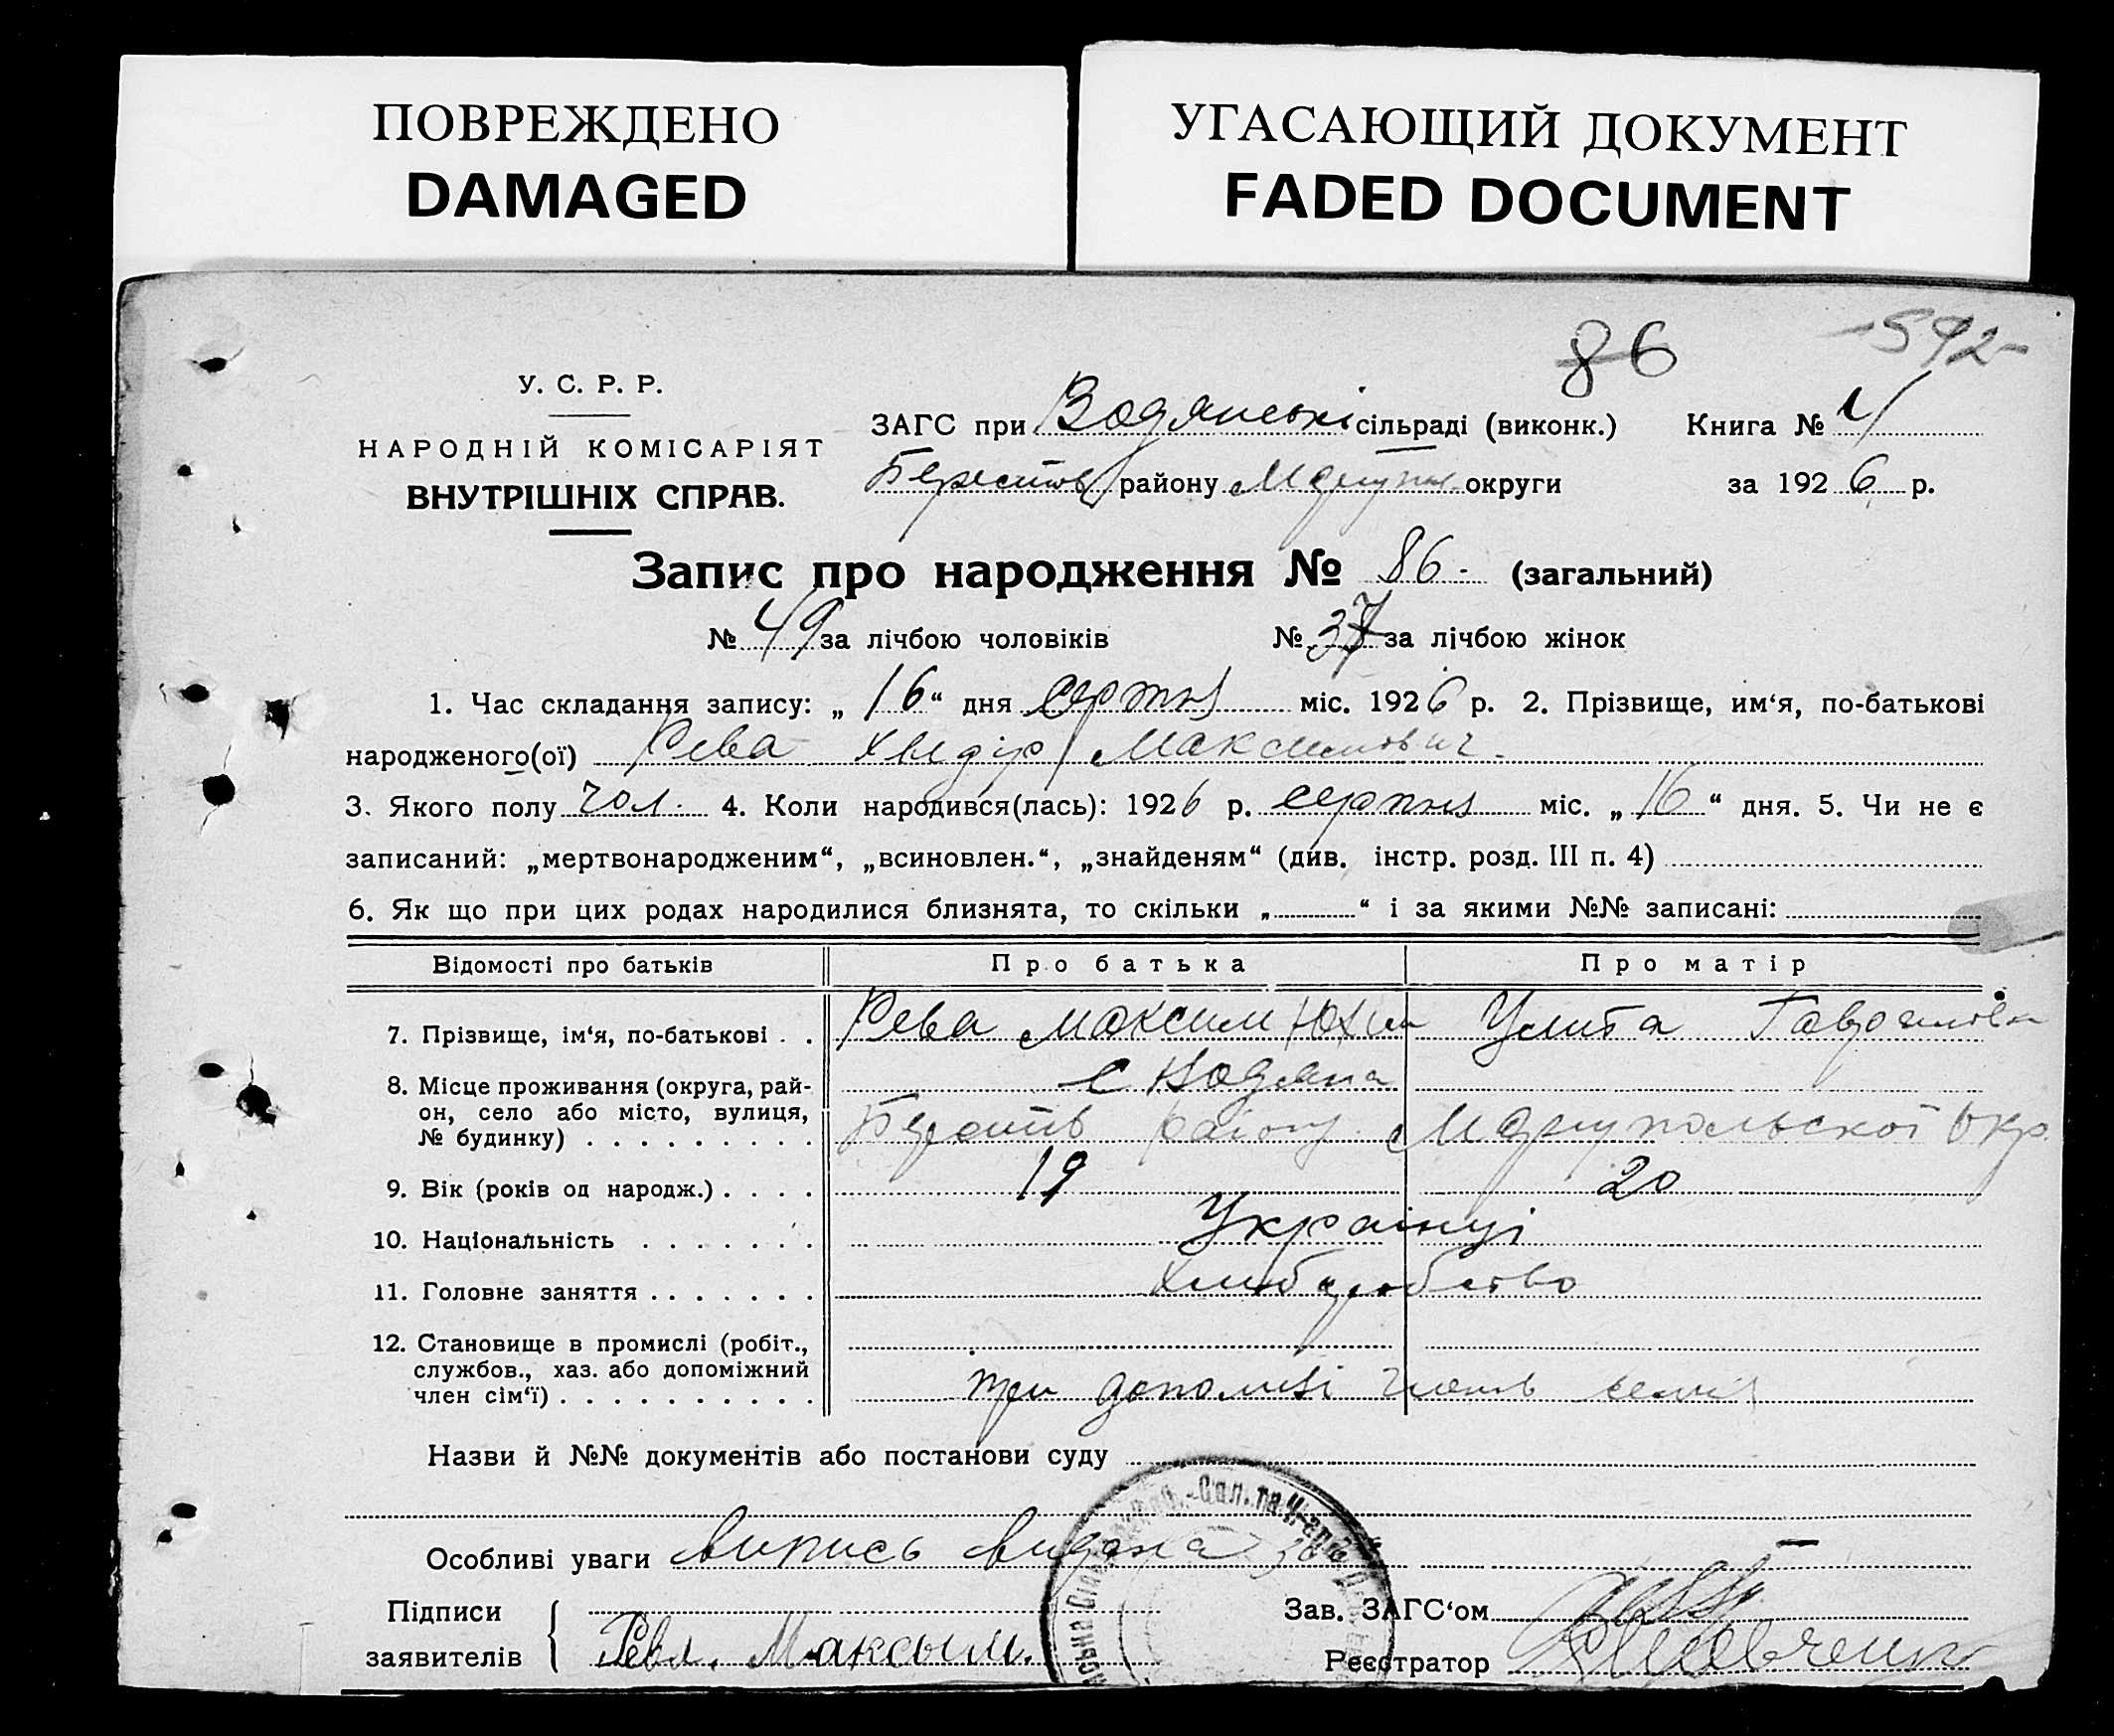 ПОВРЕЖДЕНО
DAMAGED
УГАСАЮЩИЙ ДОКУМЕНТ
FADED DOCUMENT
86
-592-
У. С. Р. Р.
НАРОДНІЙ КОМІСАРІЯТ
ВНУТРІШНІХ СПРАВ.
ЗАГС при Водянські сільраді (виконк.) Книга № 4
Берестов району Маріуп. округи за 1926 р.
Запис про народження № 86 - (загальний)
№ 49 за лічбою чоловіків № 37 за лічбою жінок
1. Час складання запису: „ 16 “ дня серпня міс. 1926 р. 2. Прізвище, им‘я, по-батькові
народженого(ої) Рева Хведір Максимович.
3. Якого полу чол. 4. Коли народився(лась): 1926 р. серпня міс. „ 16 “ дня. 5. Чи не є
записаний: „мертвонародженим“, „всиновлен.“, „знайденям“ (див. інстр. розд. III п. 4)
6. Як що при цих родах народилися близнята, то скільки „ “ і за якими №№ записані:
Відомості про батьків Про батька Про матір
7. Прізвище, ім‘я, по-батькові . . Рева Максим Юхим Улита Гавриловн
8. Місце проживання (округа, рай- с Водяна
он, село або місто, вулиця,
№ будинку) . . . . . . . . . Берестів району Маріупольскої Окр.
9. Вік (років од народж.) . . . . 19 20
10. Національність . . . . . . . Українці
11. Головне заняття . . . . . . . Хлібробство
12. Становище в промислі (робіт.,
службов., хаз. або допоміжний
член сім‘ї) . . . . . . . . . . при допомзі членів семї
Назви й №№ документів або постанови суду
Особливі уваги Випись видана
Підписи Зав. ЗАГС‘ом
заявителів Рева. Максым. Реєстратор